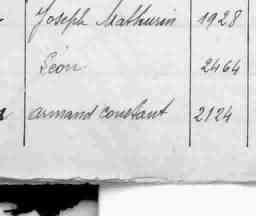 Joseph Mathurin 1928
Léon 2464
Armand Constant 2124